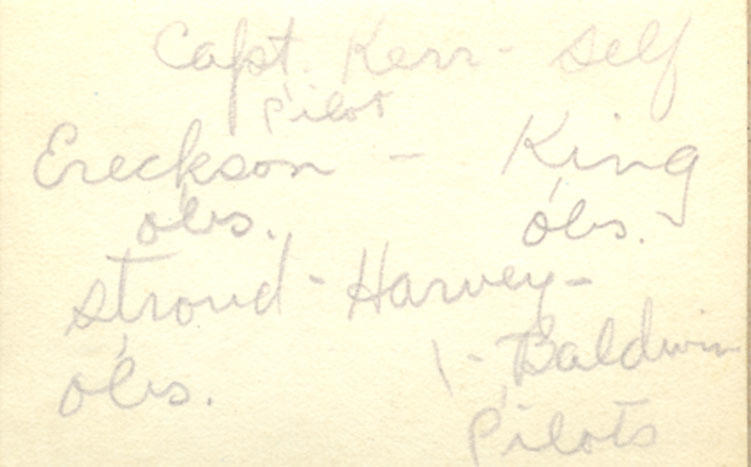 Capt. Kerr - self
pilot
Ereckson - King
obs. obs.
Stroud - Harvey -
- Baldwin
obs.
pilots